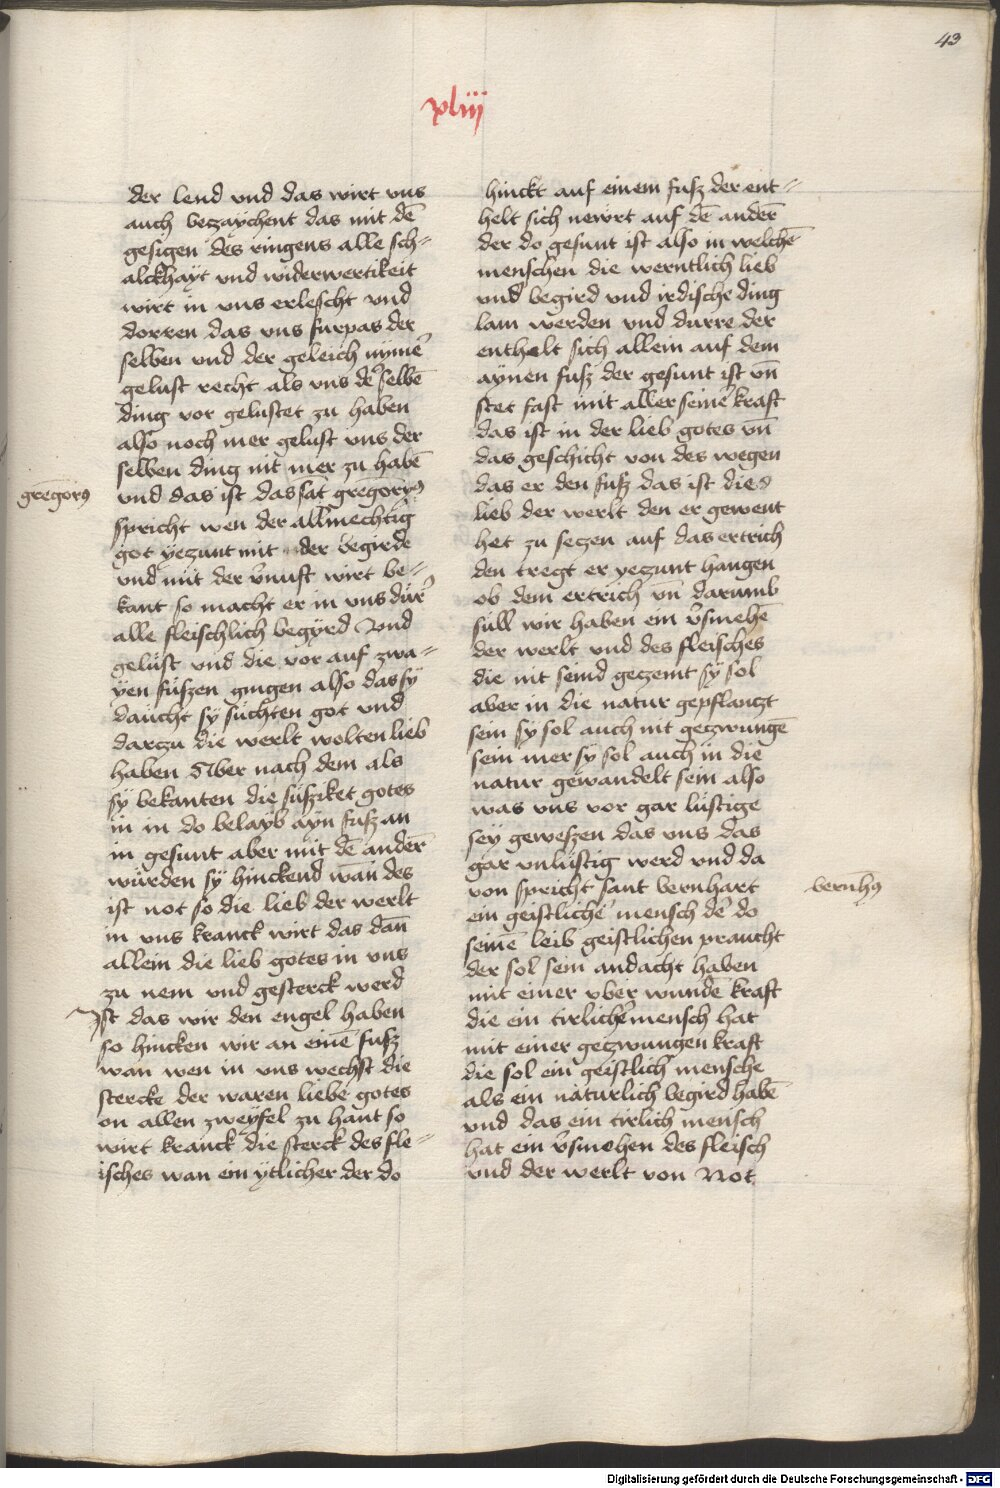 43
xliij
der lend vnd das wirt vns
auch beczaychent das mit dē
gesigen des ringens alle sch=
alckhayt vnd widerwertikeit
wirt in vns erlescht vnd
dorren das vns furpas der
selben vnd der geleich nymer
gelust recht als vns der selbē
ding vor gelustet zu haben
also noch mer gelust vns der
selben ding nit mer zu habē
gregorꝰ
vnd das ist das sāt gregoryꝰ
spricht wen der allmechtig
got yezunt mit der begirde
vnd mit der v̄nuft wirt be=
kant so macht er in vns dur̄
alle fleischlich begyrd Vnd
gelüst vnd die vor auf zwa=
yen füszen gingen also das sy
daucht sy suchten got vnd
darzu die werlt wolten lieb
haben Aber nach dem als
sy bekanten die süsziket gotes
in in do belayb ayn fusz an
in gesunt aber mit dē andern̄
wurden sy hinckend wān des
ist not so die lieb der werlt
in vns kranck wirt das dān
allein die lieb gotes in vns
zu nem vnd gesterck werd
Ist das wir den engel haben
so hincken wir an einē fusz
wan wen in vns wechst die
stercke der waren liebe gotes
on allen zweyfel zu hant so
wirt kranck die sterck des fle=
isches wan ein ytlicher der do
hinckt auf einem fusz der ent=
helt sich newrt auf dē andern̄
der do gesunt ist also in welchē
menschen die werntlich lieb
vnd begird vnd irdische ding
lam werden vnd durre der
enthelt sich allein auf dem
aynen fusz der gesunt ist vn̄
stet fast mit aller seiner kraft
das ist in der lieb gotes vn̄
das geschicht von des wegen
das er den fusz das ist die
lieb der werlt den er gewent
het zu seczen auf das ertrich
den tregt er yezunt hangen
ob dem ertrich vn̄ darumb
süll wir haben ein v̄smehē
der werlt vnd des fleisches
die nit seind gezemt sy sol
aber in die natur gepflanczt
sein sy sol auch nit geczwungē
sein mer sy sol auch in die
natur gewandelt sein also
was vns vor gar lüstige
sey geweszen das vns das
gar vnlüstig werd vnd da
von spricht sant bernhart
bernhꝰ
ein geistlicher mensch der do
seinē leib geistlichen praucht
der sol sein andacht haben
mit einer vber wundē kraft
die ein tirlicher mensch hat
mit einer geczwungen kraft
die sol ein geistlich mensche
als ein natürlich begird habē
vnd das ein tirlich mensch
hat ein v̄smehen des fleisch
vnd der werlt von Not
Digitalisierung gefördert durch die Deutsche Forschungsgemeinschaft - DFG